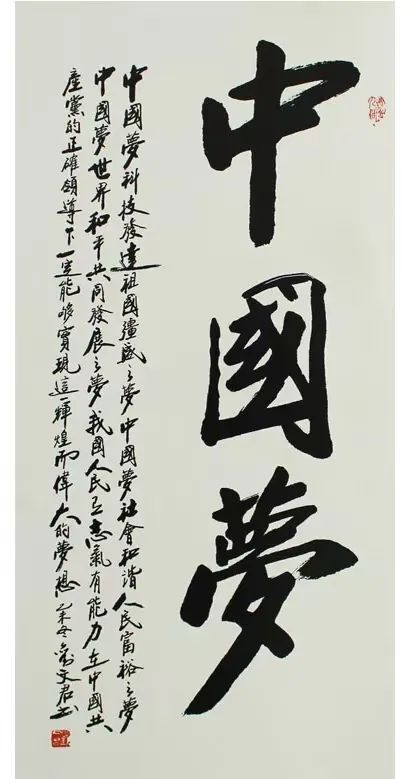 中國夢
中國夢科技發達祖國強盛之夢中國夢社會和諧人民富裕之夢
中國夢世界和平共同發展之夢我國人民有志氣有能力在中國共
產黨的正確領導下一定能够實現這一輝煌而偉大的夢想 文君书